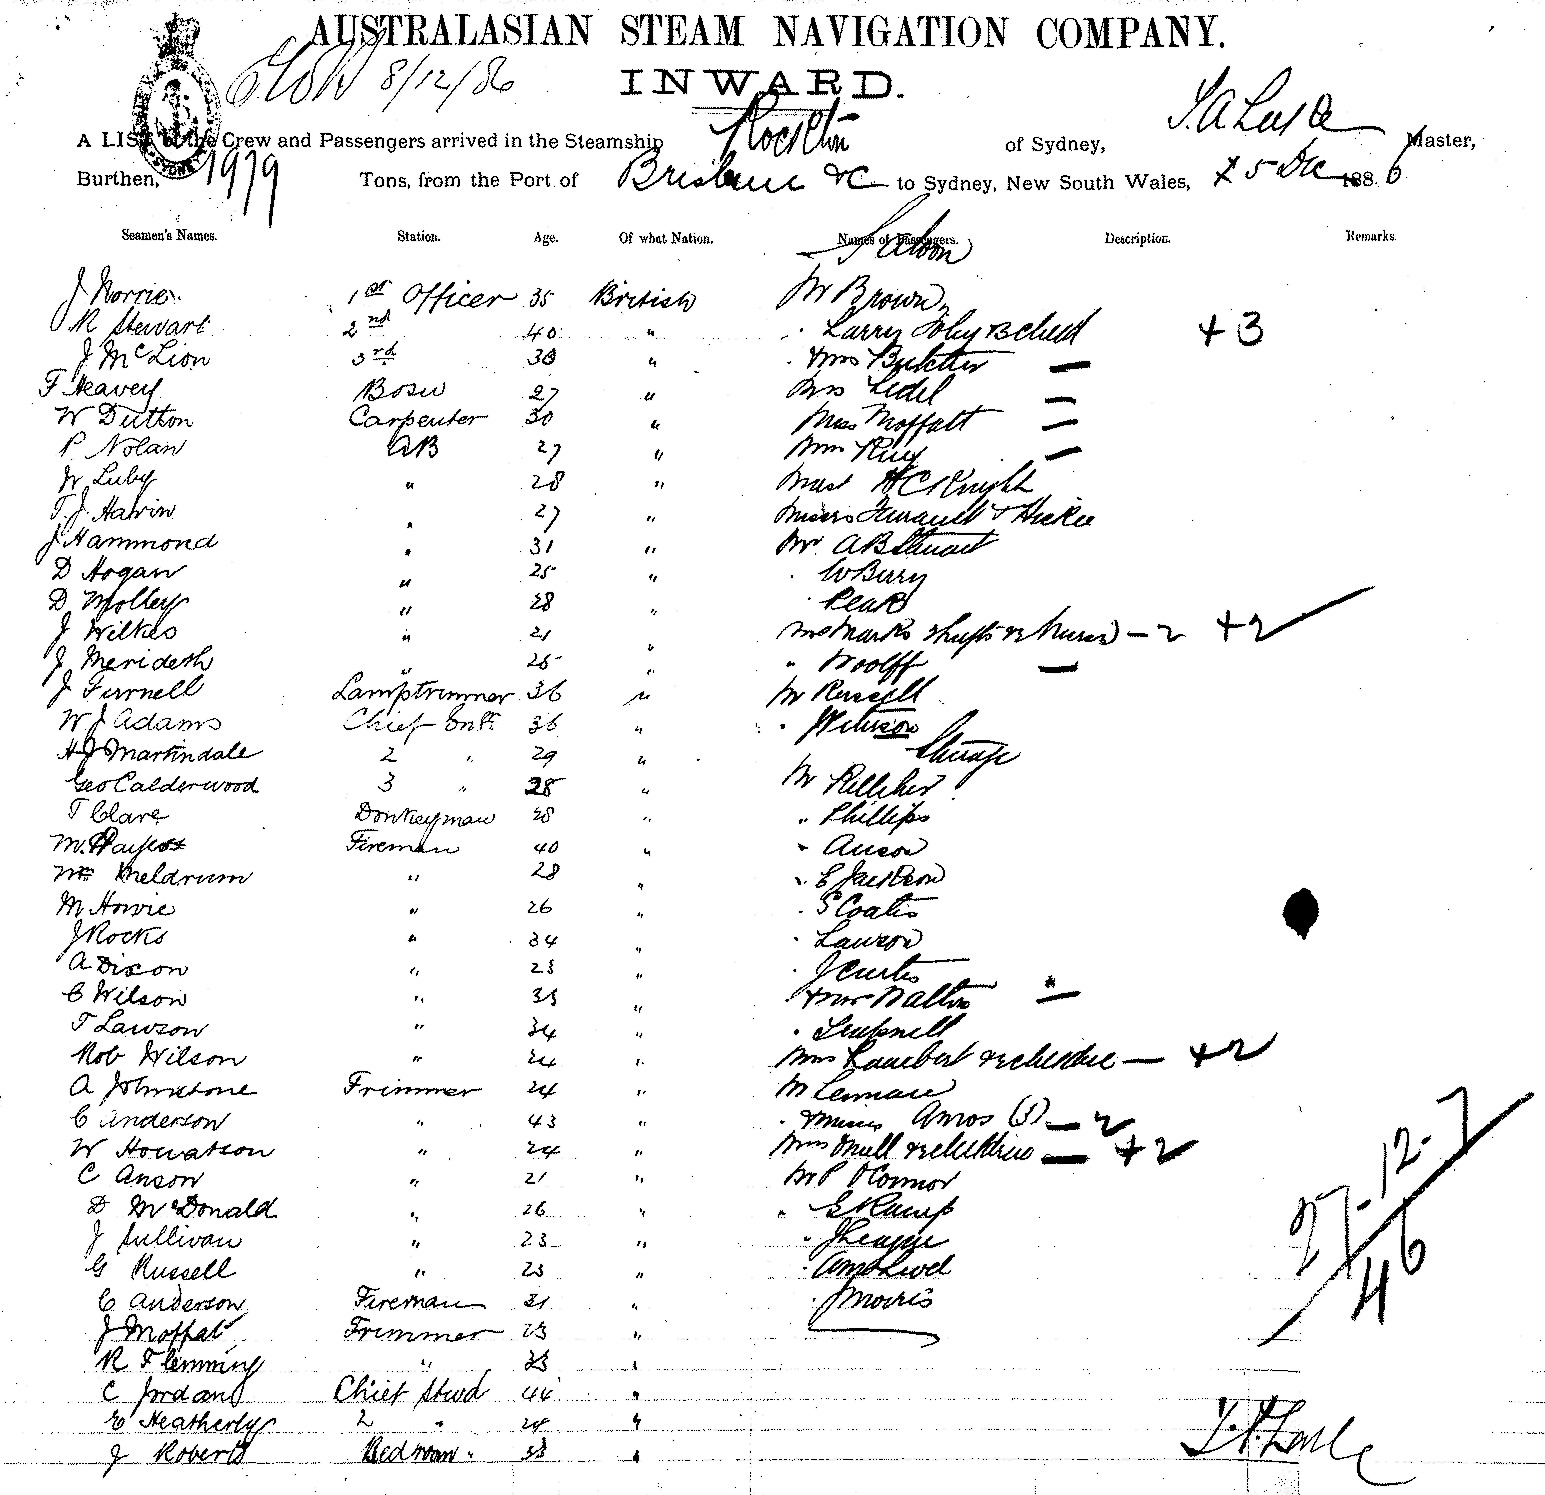 AUSTRALASIAN STEAM NAVIGATION COMPANY.
8/12/86
INWARD.
A LIST of the Crew and Passengers arrived in the Steamship Rockton of Sydney, Master,
Burthen, 1979 Tons, from the Port of Brisbane &c to Sydney, New South Wales, 5 Dec 1886
Seamen's Names. Station. Age. Of what Nation. Names of Passengers. Description. Remarks.
Saloon
J Norrie 1st Officer 35 British Mr Brown
R Stewart 2nd 40 " " Larry + 3
J McLion 3rd 30 " " & Mrs Butcher —
F Heavey Bosn 27 " Mrs —
W Dutton Carpenter 30 " Miss Moffatt —
P Nolan AB 27 " —
W Luby " 28 " H C Knight
T. J. " 27 " & Hickie
J Hammond " 31 " Mr A B Stuart
D Hogan " 25 " " W Berry
D Molloy " 28 "
J Wilkes " 21 " Mrs Marks & Nurse — 2 + 2
J Merideth " 25 " " Woolff —
J Furnell Lamptrimmer 36 " Mr Russell
W J Adams Chief 36 "
Steerage
H J Martindale 2 " 29 "
Geo Calderwood 3 " 28 " Mr Kelleher
T Clare Donkeyman 28 " " Phillips
Fireman 40 " " Anson
Meldrum " 28 " " E Jackson
M Howie " 26 " " S Coates
J Rocks " 34 " " Lawson
A Dixon " 23 " " J Curtis
C Wilson " 33 " " & Mrs Walton —
T Lawson " 34 "
Rob Wilson " 24 " Mrs Lambert & — + 2
A Johnstone Trimmer 24 " Mr
C Anderson " 43 " " & Misses Amos — 2
W Houatson " 24 " Mrs & children — + 2
C Anson " 21 " Mr P O'Connor
D McDonald " 26 " "
J Sullivan " 23 " "
G Russell " 23 " "
C Anderson Fireman 31 " " J Morris
J Moffat Trimmer 23 "
R Flemming " 23 "
C Jordan Chief Stwd 44 "
E Heatherly 2 " 24 "
J Roberts Bedroom " 33 "
27-12-7
46